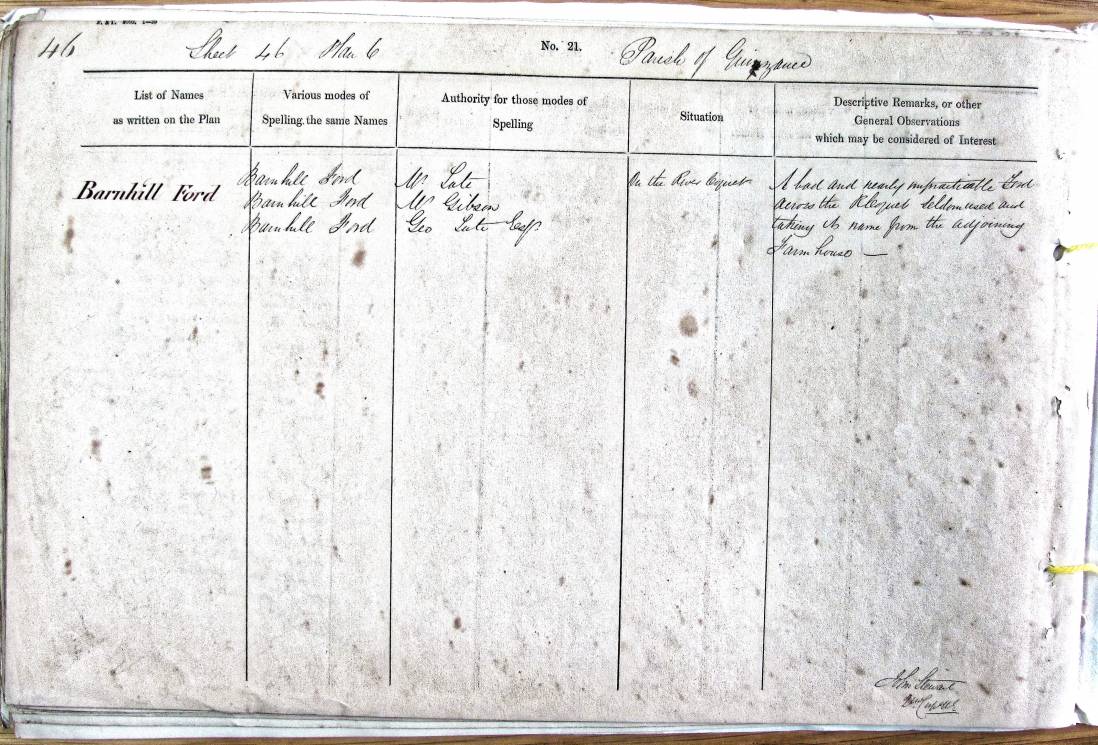 46 Sheet 46 Plan 6 No. 21. Parish of Guizance
List of Names
as written on the Plan
Various modes of
Spelling the same Names
Authority for those modes of
Spelling
Situation
Descriptive Remarks, or other
General Observations
which may be considered of Interest
Barnhill Ford
Barnhill Ford
Barnhill Ford
Barnhill Ford
Mr Tate
Mr Gibson
Geo Tate Esqr
On the River Coquet
A bad and nearly impracticable Ford
across the R Coquet seldom used and
taking its name from the adjoining
Farm house —
John Stewart